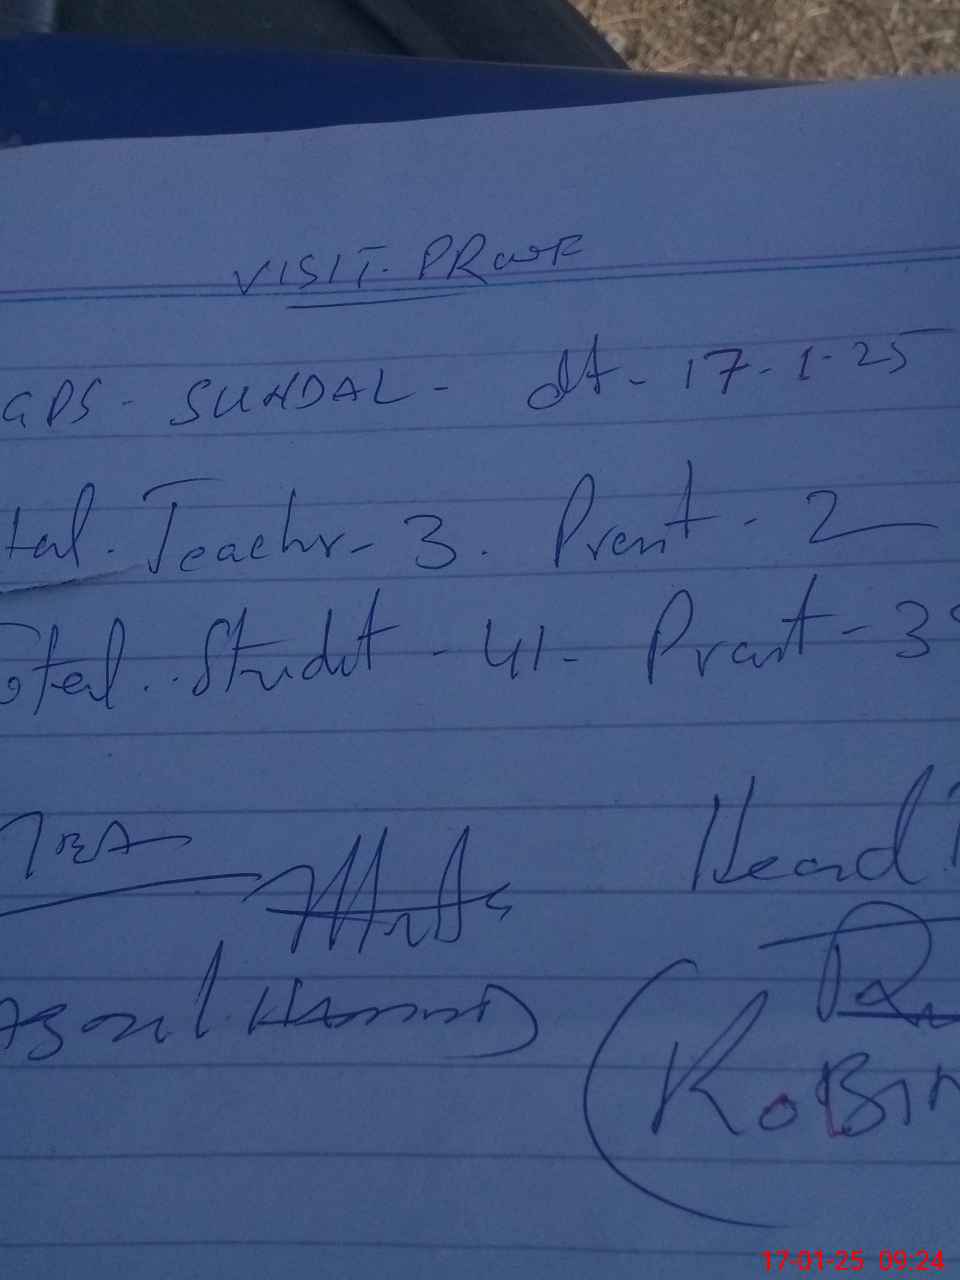 VISIT. PRooF
GPS - SUNDAL - dt - 17-1-25
tal. Teachr - 3. Presnt - 2
Total. Studnt - 41 - Presnt - 3
Head
RoBin
17-01-25 09:24